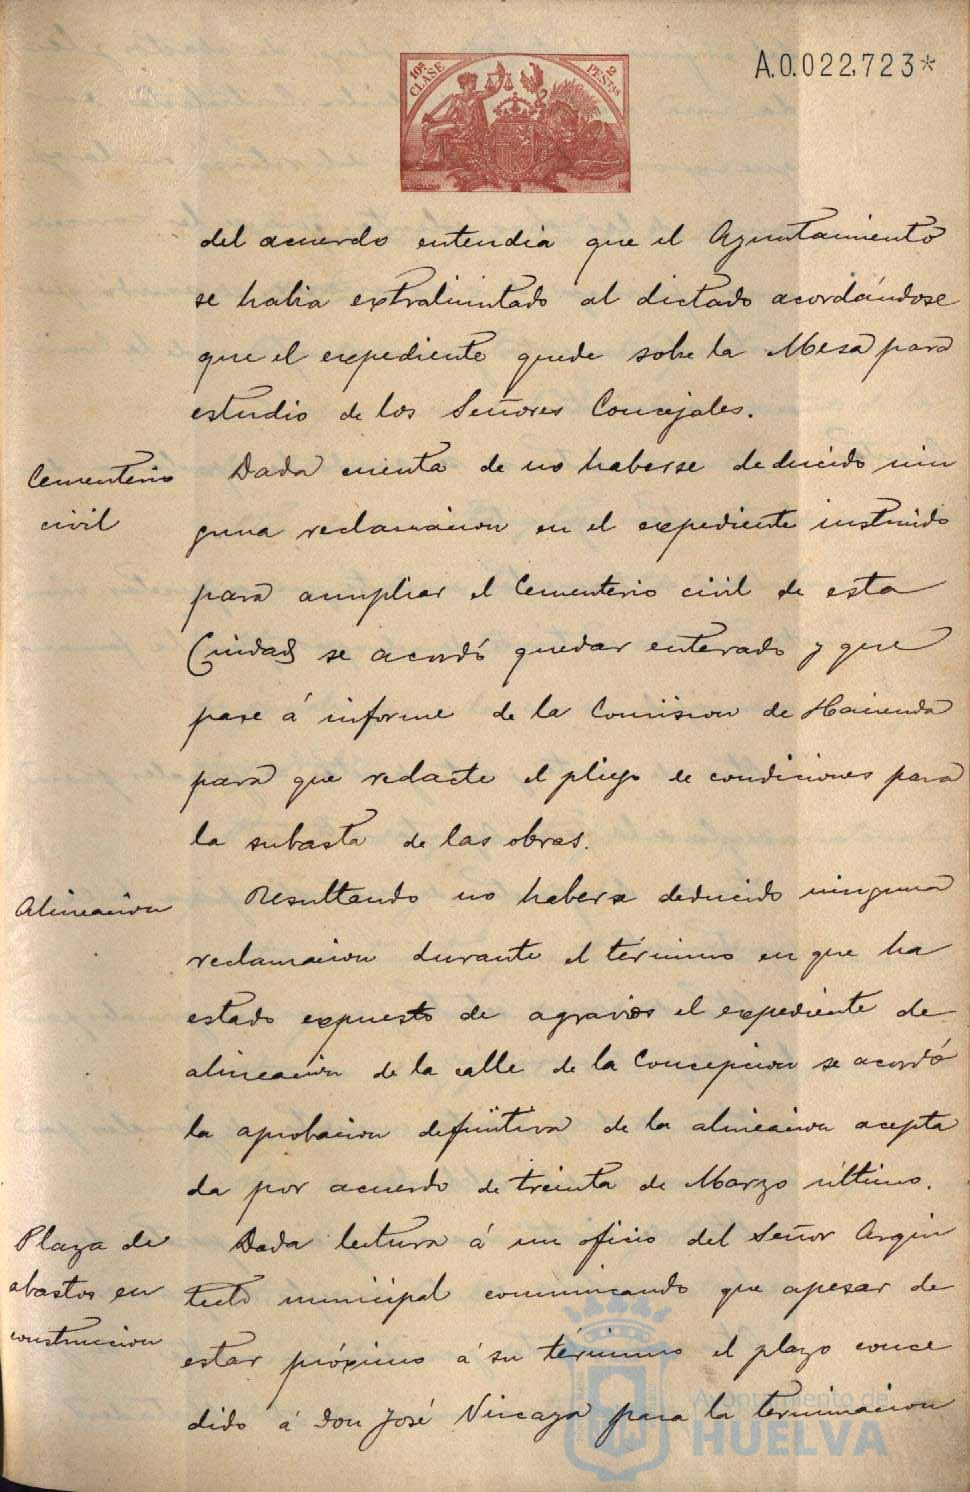 A.0.022,723*
10ª CLASE
2 PESETAS
del acuerdo entendia que el Ayuntamiento
se habia extralimitado al dictado acordándose
que el expediente quede sobre la Mesa para
estudio de los Señores Concejales.
Cementerio
civil
Dada cuenta de no haberse deducido nin
guna reclamacion en el expediente instruido
para ampliar el Cementerio civil de esta
Ciudad se acordó quedar enterado y que
pase á informe de la Comision de Hacienda
para que redacte el pliego de condiciones para
la subasta de las obras.
Alineacion
Resultando no haberse deducido ninguna
reclamacion durante el término en que ha
estado expuesto de agravios el expediente de
alineacion de la calle de la Concepcion se acordó
la aprobacion definitiva de la alineacion acepta
da por acuerdo de treinta de Marzo último.
Plaza de
abastos en
construccion
Dada lectura á un oficio del Señor Arqui
tecto municipal comunicando que apesar de
estar próximo á su término el plazo conce
dido á Don José Vizcaya para la terminacion
Ayuntamiento de
HUELVA